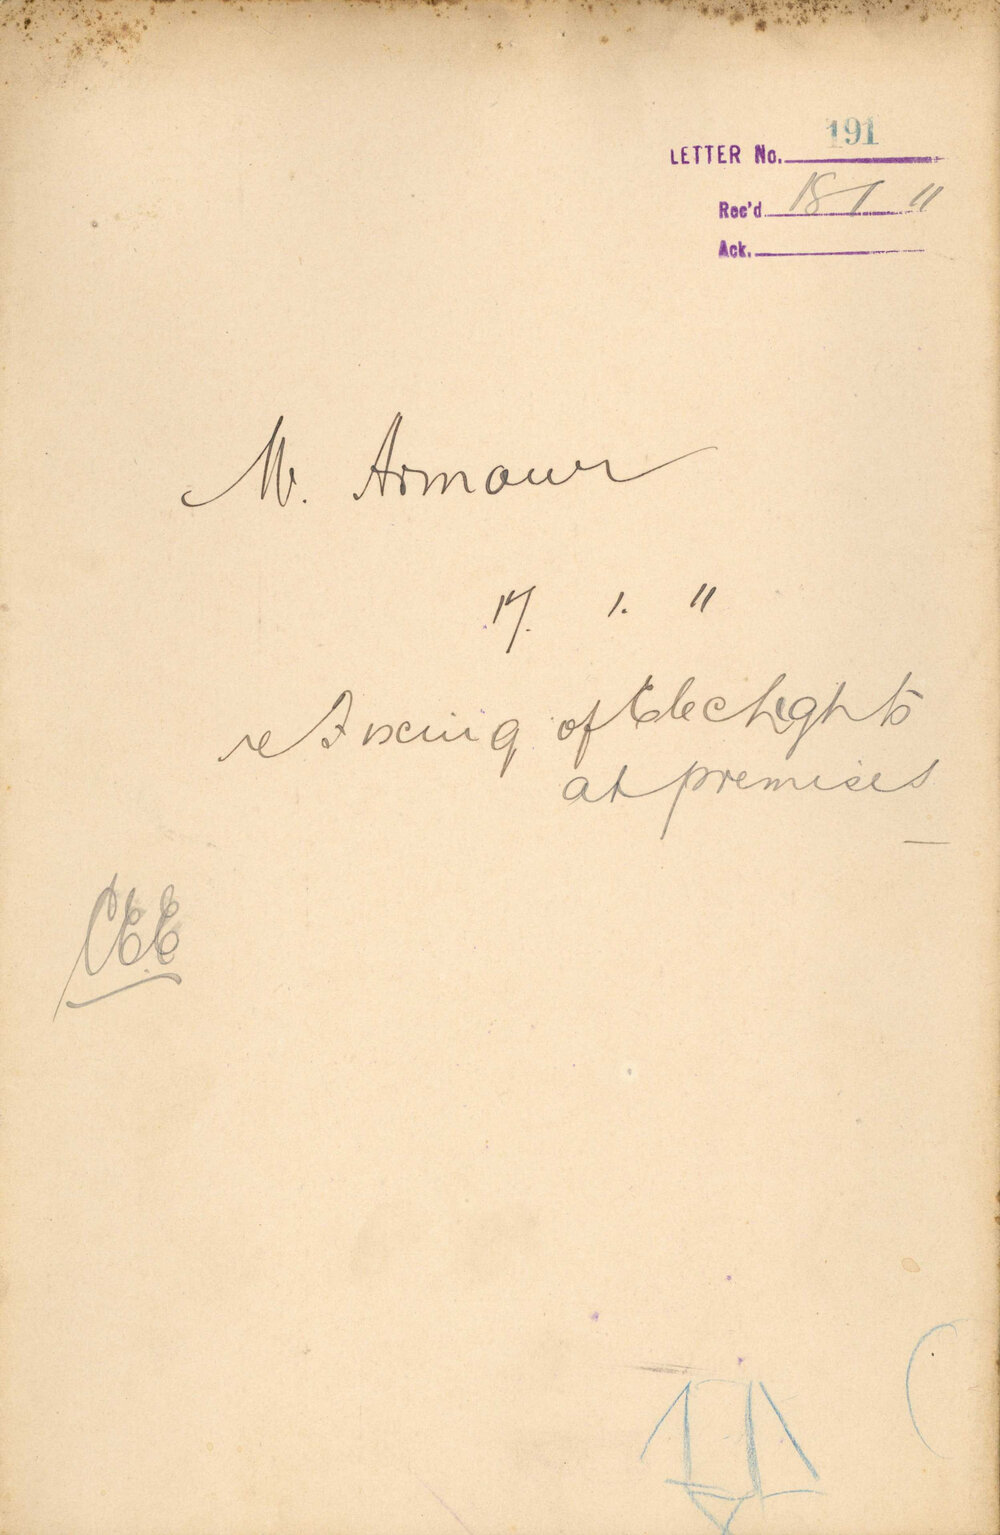 LETTER No. 191
Rec'd 18 1 11
Ack.
W. Armour
17. 1. 11
re Fixing of Elec Lights
at premises
CEE